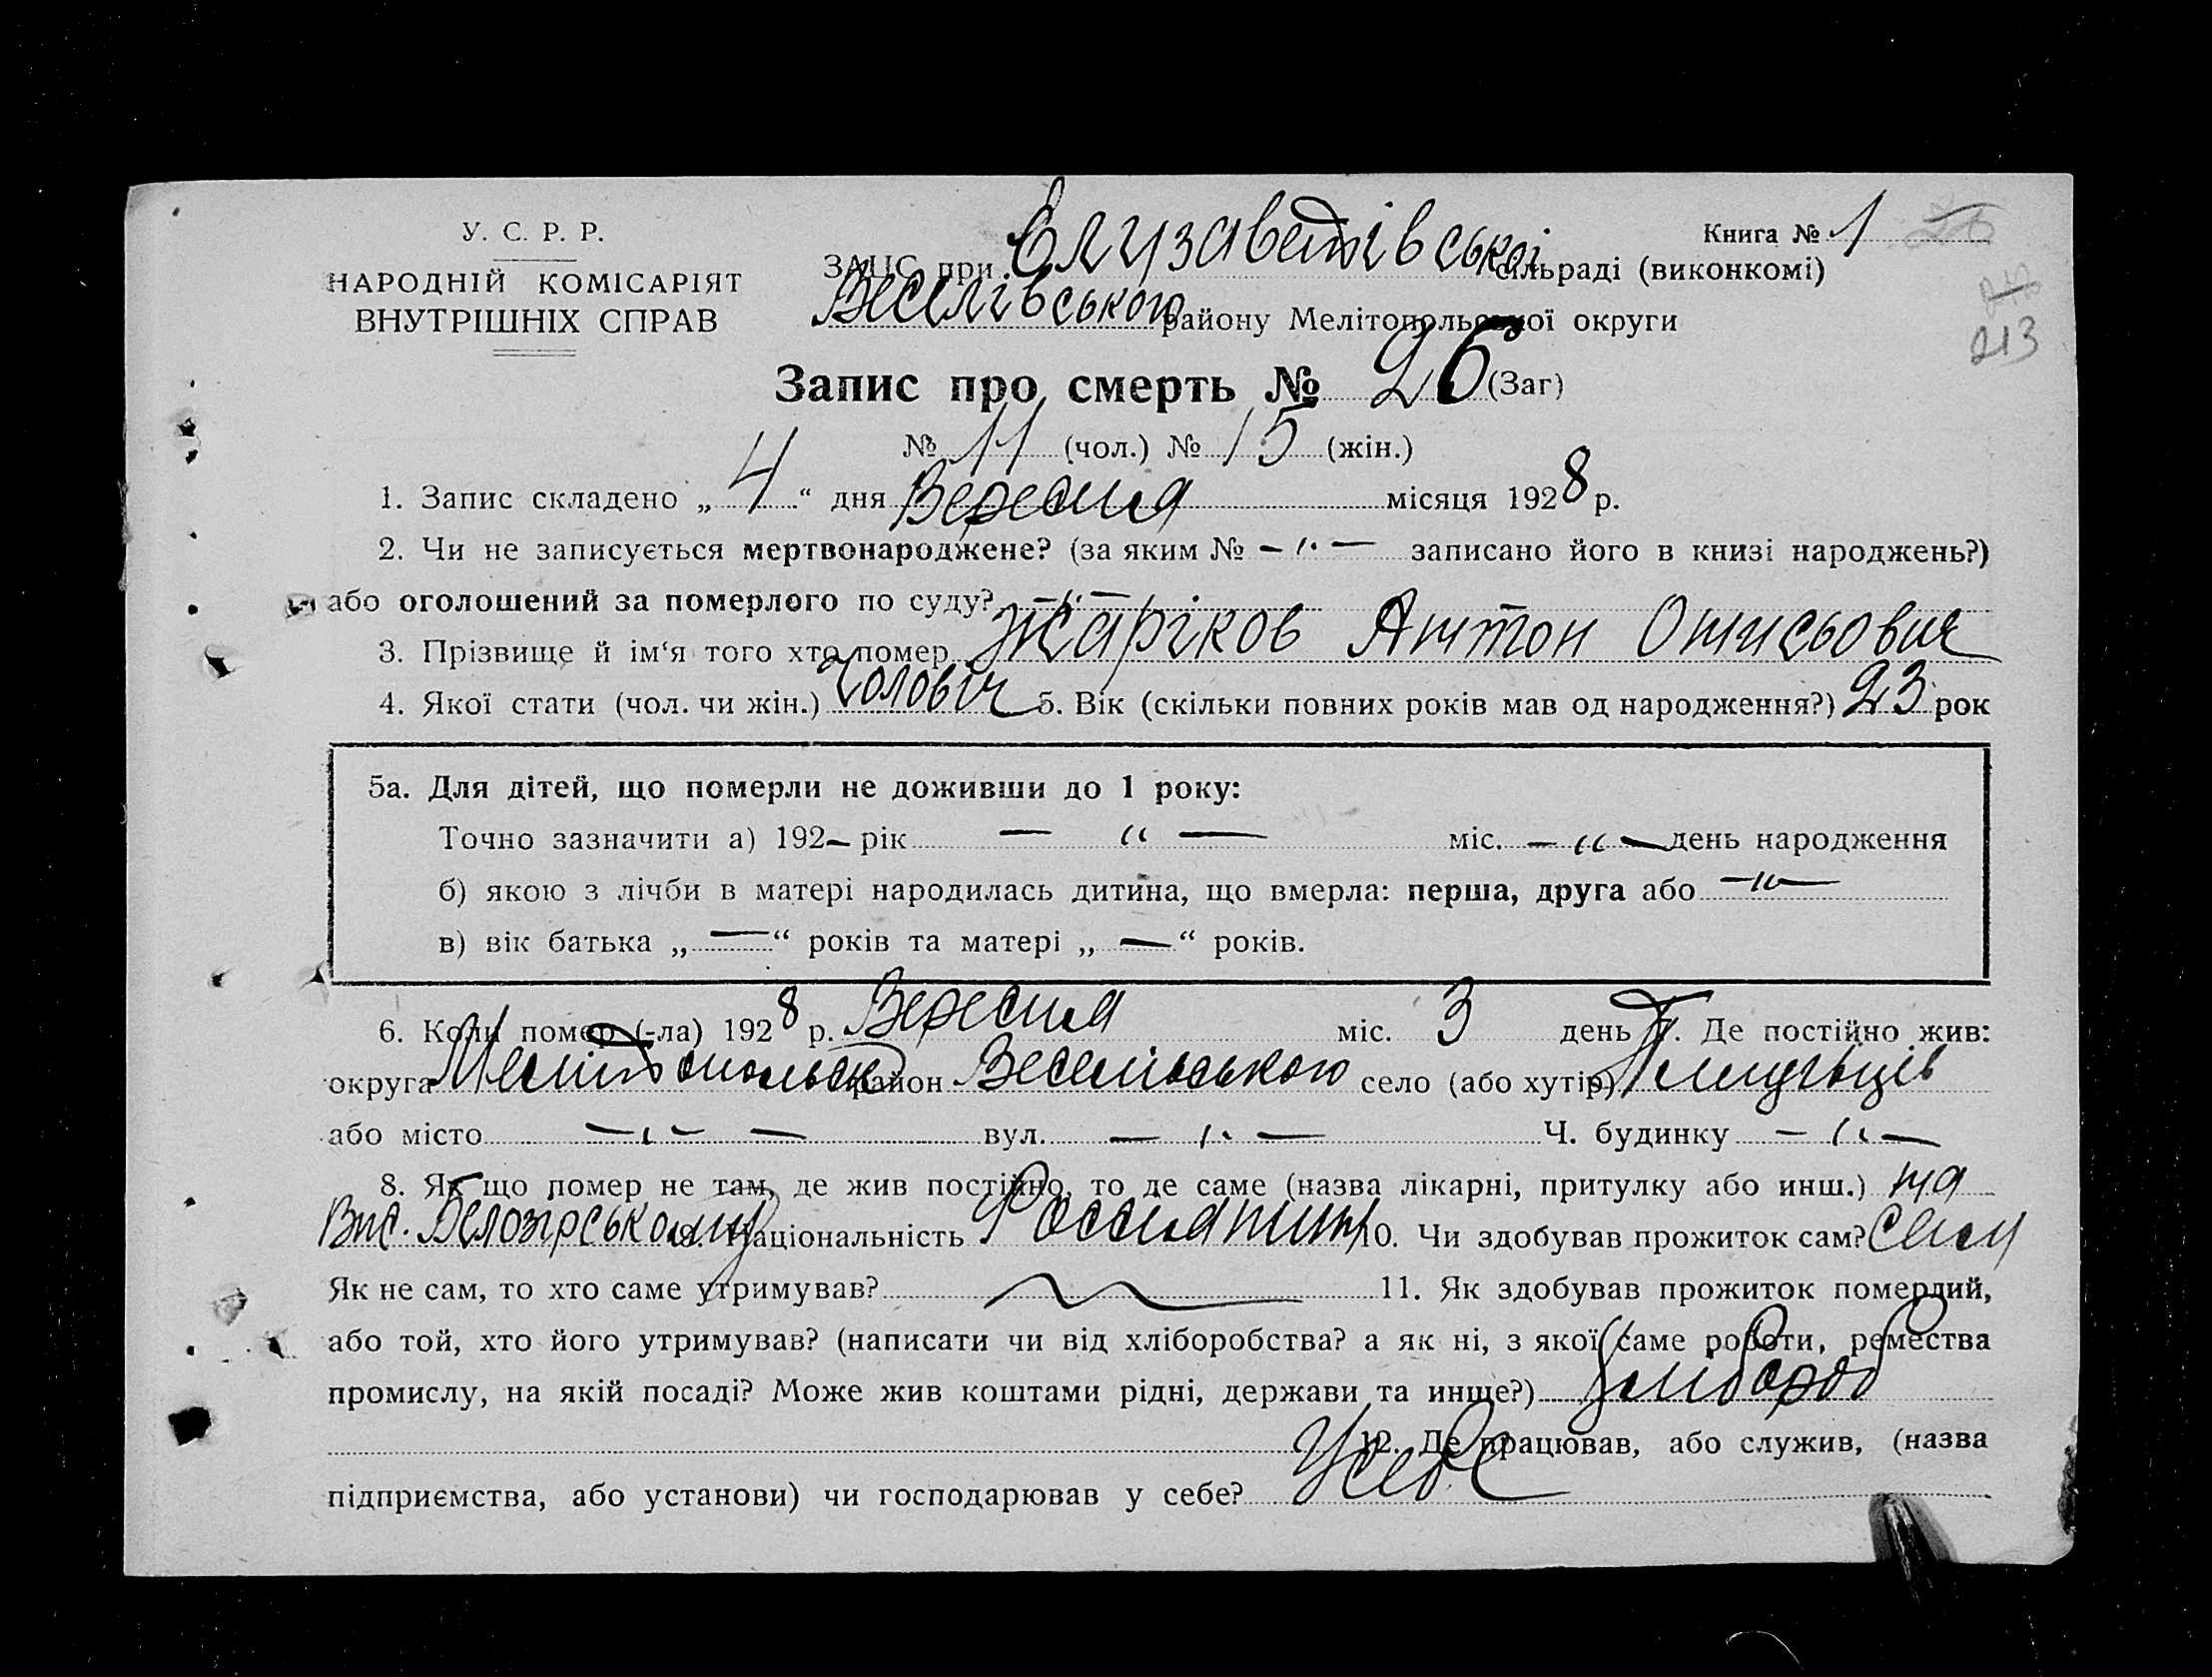 У. С. Р. Р.
НАРОДНІЙ КОМІСАРІЯТ
ВНУТРІШНІХ СПРАВ
Книга № 1
ЗАЦС при Єлузаветівській сільраді (виконкомі)
Веселівського району Мелітопольської округи
213
Запис про смерть № 26 (Заг)
№ 11 (чол.) № 15 (жін.)
1. Запис складено „ 4 “ дня Вересня місяця 1928 р.
2. Чи не записується мертвонароджене? (за яким № – " – записано його в книзі народжень?)
або оголошений за померлого по суду? – " –
3. Прізвище й ім‘я того хто помер Жаріков Антон
4. Якої стати (чол. чи жін.) Чоловіч 5. Вік (скільки повних років мав од народження?) 23 рок
5а. Для дітей, що померли не доживши до 1 року:
Точно зазначити а) 192– рік – " – міс. – " – день народження
б) якою з лічби в матері народилась дитина, що вмерла: перша, друга або – " –
в) вік батька „ — “ років та матері „ — “ років.
6. Коли помер (-ла) 1928 р. Вересня міс. 3 день 7. Де постійно жив:
округа Мелітопольськ район Веселівського село (або хутір)
або місто – " – – вул. – " – Ч. будинку – " –
8. Як що помер не там, де жив постійно, то де саме (назва лікарні, притулку або инш.) на
9. Національність 10. Чи здобував прожиток сам? Сам
Як не сам, то хто саме утримував? 11. Як здобував прожиток померлий,
або той, хто його утримував? (написати чи від хліборобства? а як ні, з якої саме роботи, ремества
промислу, на якій посаді? Може жив коштами рідні, держави та инще?) Хлібороб
12. Де працював, або служив, (назва
підприємства, або установи) чи господарював у себе? У себе